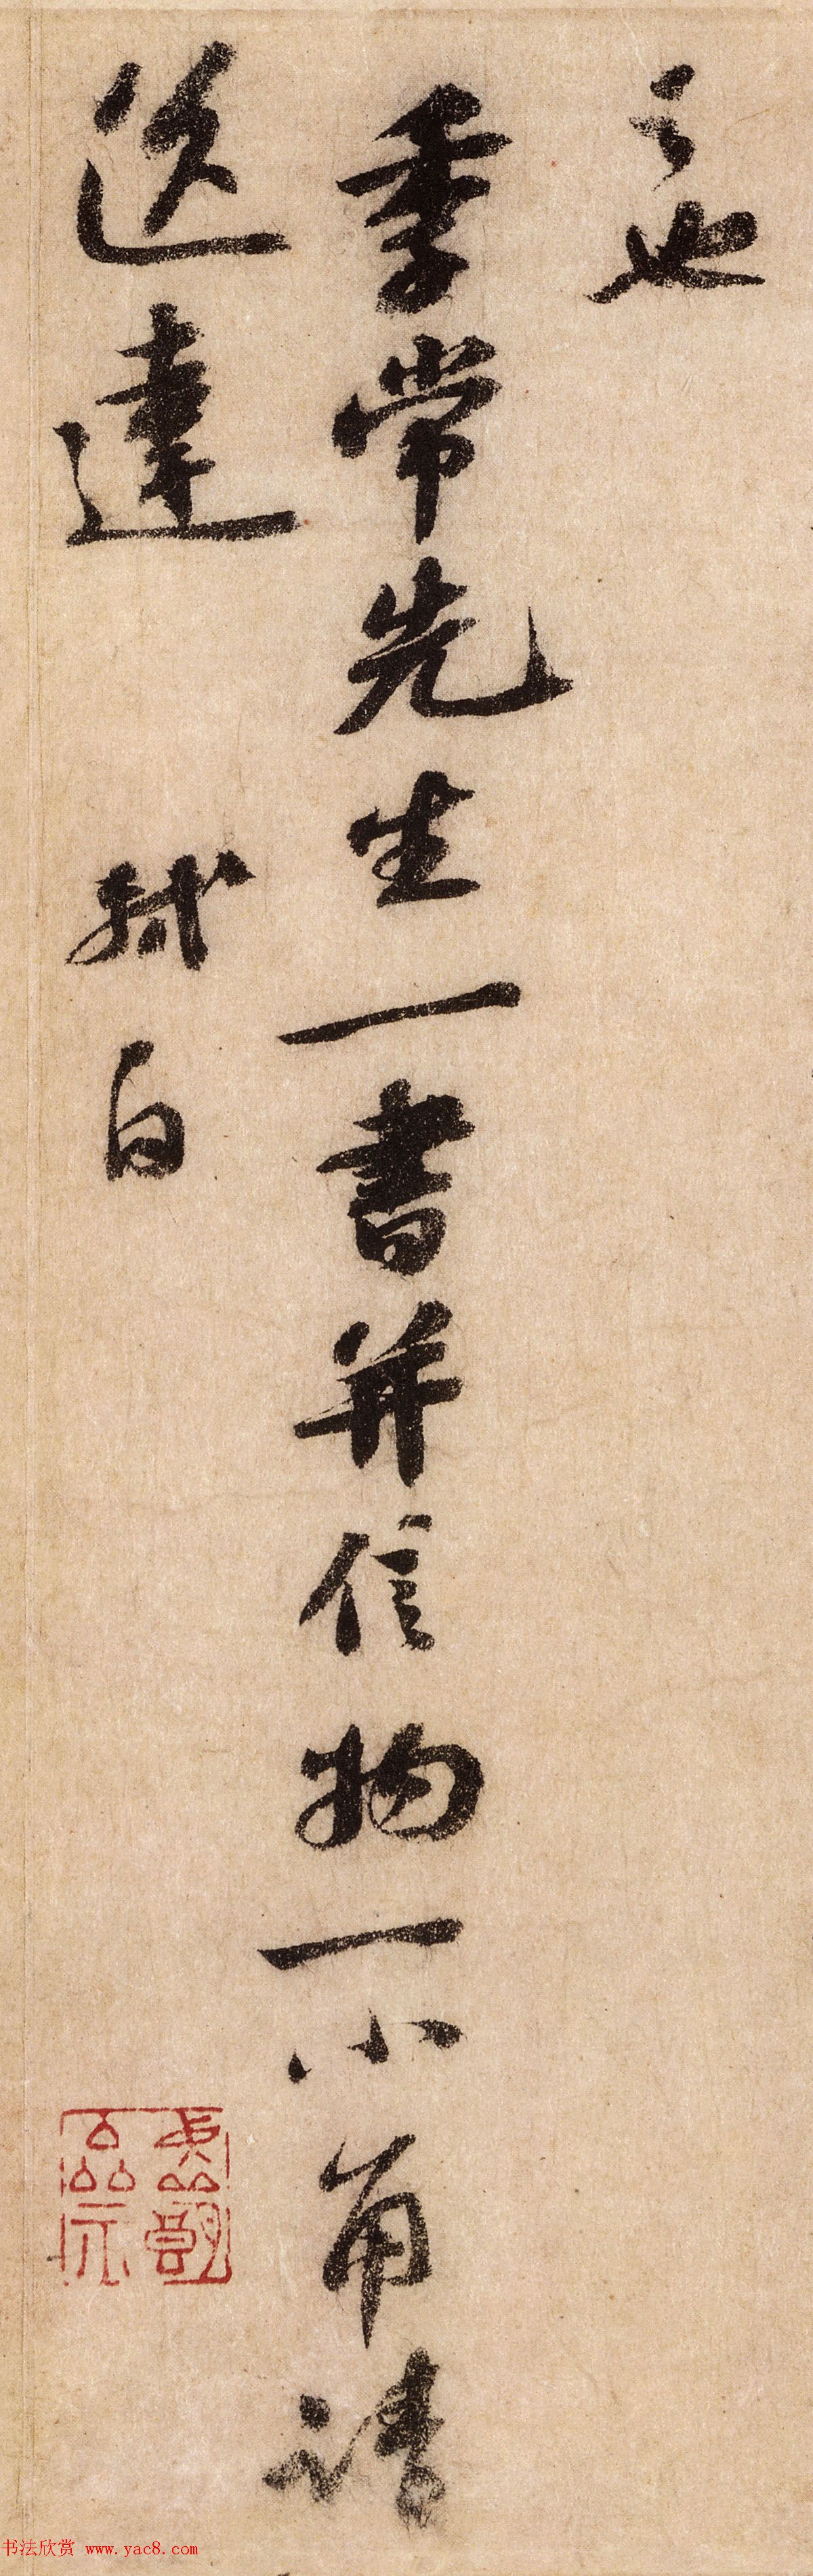 之也
季常先生一書并信物一小角請
送達　　軾白
书法欣赏 www.yac8.com